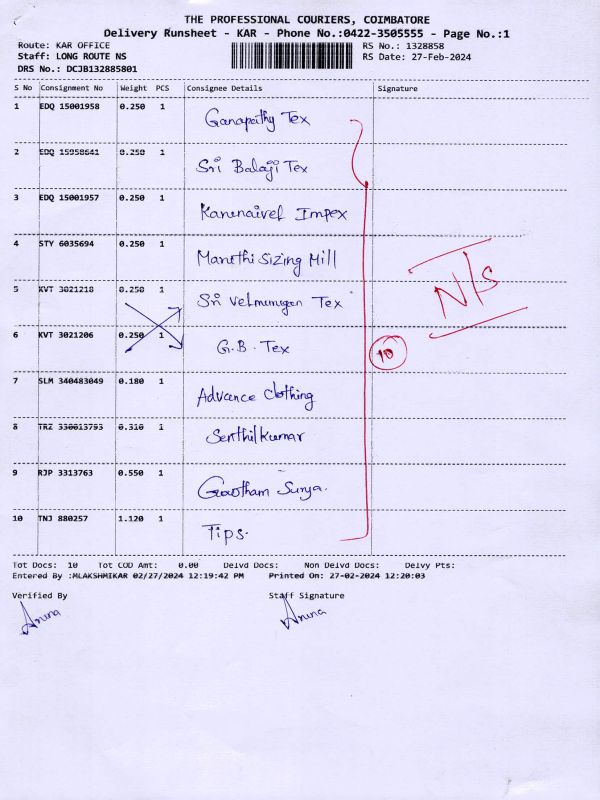 THE PROFESSIONAL COURIERS, COIMBATORE
Delivery Runsheet - KAR - Phone No.:0422-3505555 - Page No.:1
Route: KAR OFFICE RS No.: 1328858
Staff: LONG ROUTE NS RS Date: 27-Feb-2024
DRS No.: DCJB132885801
S No Consignment No Weight PCS Consignee Details Signature
1 EDQ 15001958 0.250 1 Ganapathy Tex
2 EDQ 15958641 0.250 1 Sri Balaji Tex
3 EDQ 15001957 0.250 1 Impex
4 STY 6035694 0.250 1 Sizing Mill
5 KVT 3021218 0.250 1 Sri Velmurugan Tex
6 KVT 3021206 0.250 1 G.B. Tex
7 SLM 340483049 0.180 1 Advance Clothing
8 TRZ 330013793 0.310 1 Senthilkumar
9 RJP 3313763 0.550 1 Gowtham Surya.
10 TNJ 880257 1.120 1 Tips.
N/s
10
Tot Docs: 10 Tot COD Amt: 0.00 Delvd Docs: Non Delvd Docs: Delvy Pts:
Entered By :MLAKSHMIKAR 02/27/2024 12:19:42 PM Printed On: 27-02-2024 12:20:03
Verified By Staff Signature
Aruna Aruna